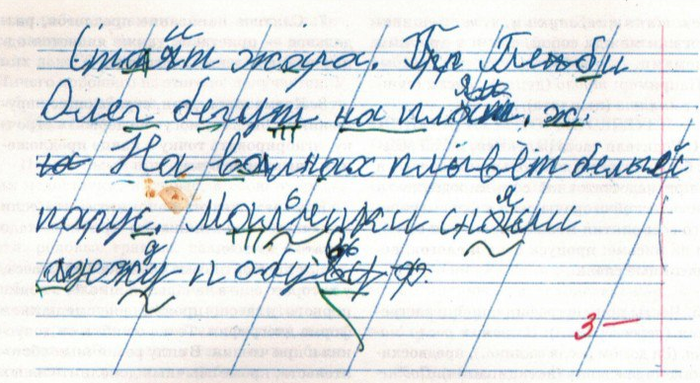 Стоят жара. Гр Глеб и
Олег бегут на пляж.
На валнах плывет белый
парус. Мальчики сняли
одежду и обувь.
3-